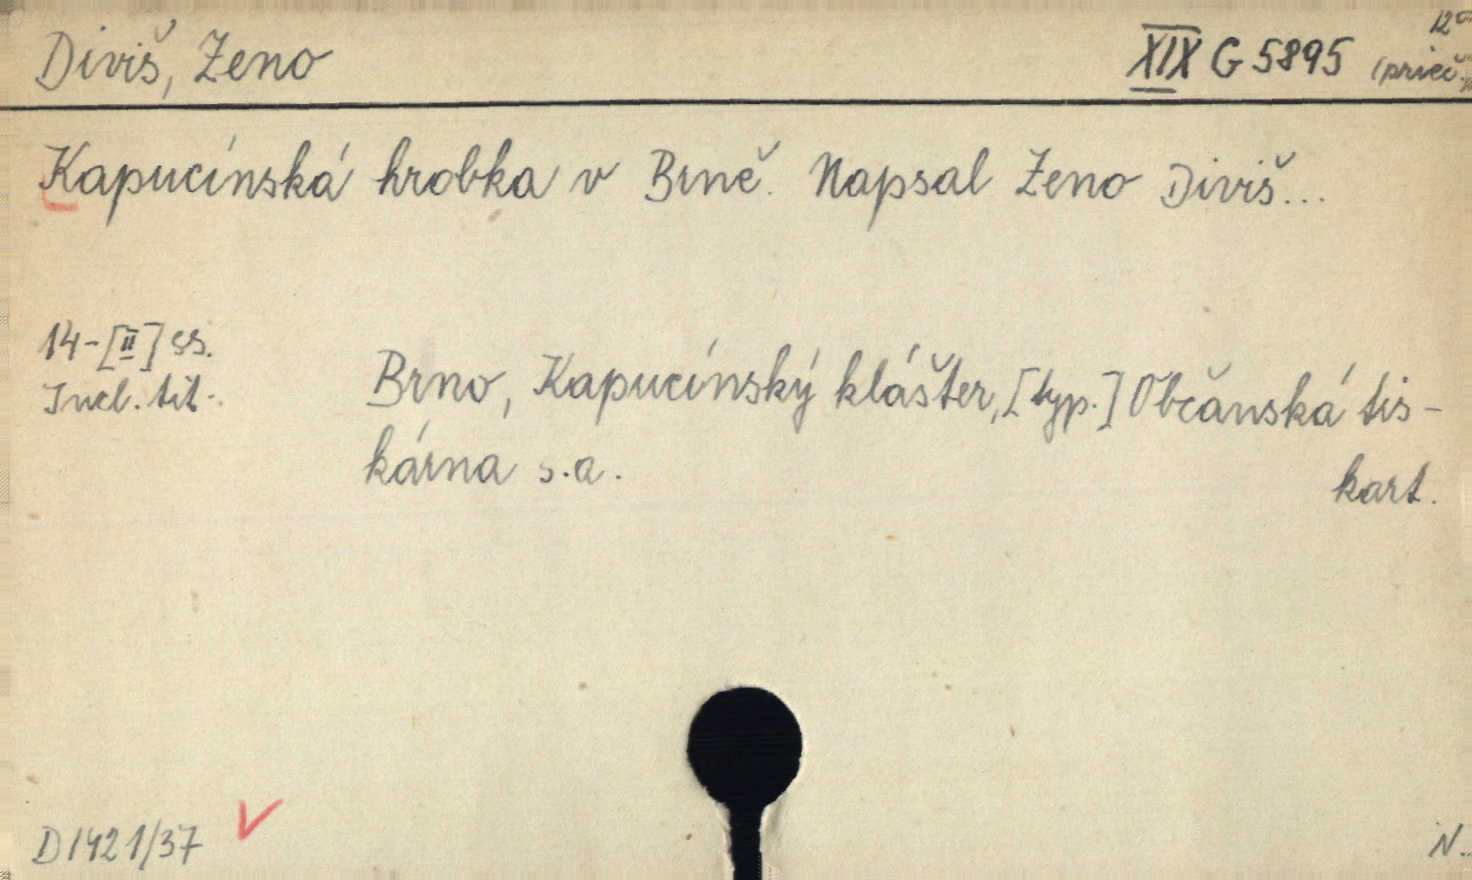 Diviš, Zeno XIX G 5895 12°
(prieč.
Kapucínská hrobka v Brně. Napsal Zeno Diviš...
14-[II] ss.
Incl. tit.
Brno, Kapucínský klášter, [typ.] Občanská tis-
kárna s.a.
kart.
D 1421/37
N..